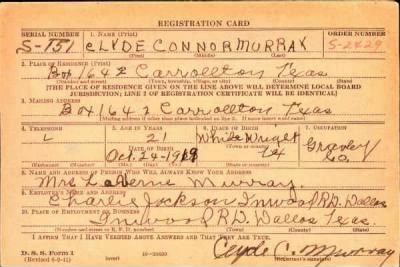 REGISTRATION CARD
SERIAL NUMBER 1. NAME (Print) ORDER NUMBER
S-151 CLYDE CONNOR MURRAY S-2429
(First) (Middle) (Last)
2. PLACE OF RESIDENCE (Print)
Box 164 2 Carrollton Texas
(Number and street) (Town, township, village, or city) (County) (State)
[THE PLACE OF RESIDENCE GIVEN ON THE LINE ABOVE WILL DETERMINE LOCAL BOARD
JURISDICTION; LINE 2 OF REGISTRATION CERTIFICATE WILL BE IDENTICAL]
3. MAILING ADDRESS
Box 164 2 Carrollton Texas
[Mailing address if other than place indicated on line 2. If same insert word same]
4. TELEPHONE 5. AGE IN YEARS 6. PLACE OF BIRTH 7. OCCUPATION
2 White Wright
DATE OF BIRTH Tex
Oct. 24-19
8. NAME AND ADDRESS OF PERSON WHO WILL ALWAYS KNOW YOUR ADDRESS
Mrs LaVerne Murray
9. EMPLOYER'S NAME AND ADDRESS
Charlie Jackson Inwood RD. Dallas
10. PLACE OF EMPLOYMENT OR BUSINESS
Inwood RD. Dallas Texas.
(Number and street or R. F. D. number) (Town) (County) (State)
I AFFIRM THAT I HAVE VERIFIED ABOVE ANSWERS AND THAT THEY ARE TRUE.
D. S. S. Form 1
(over) Clyde C. Murray
(Registrant's signature)